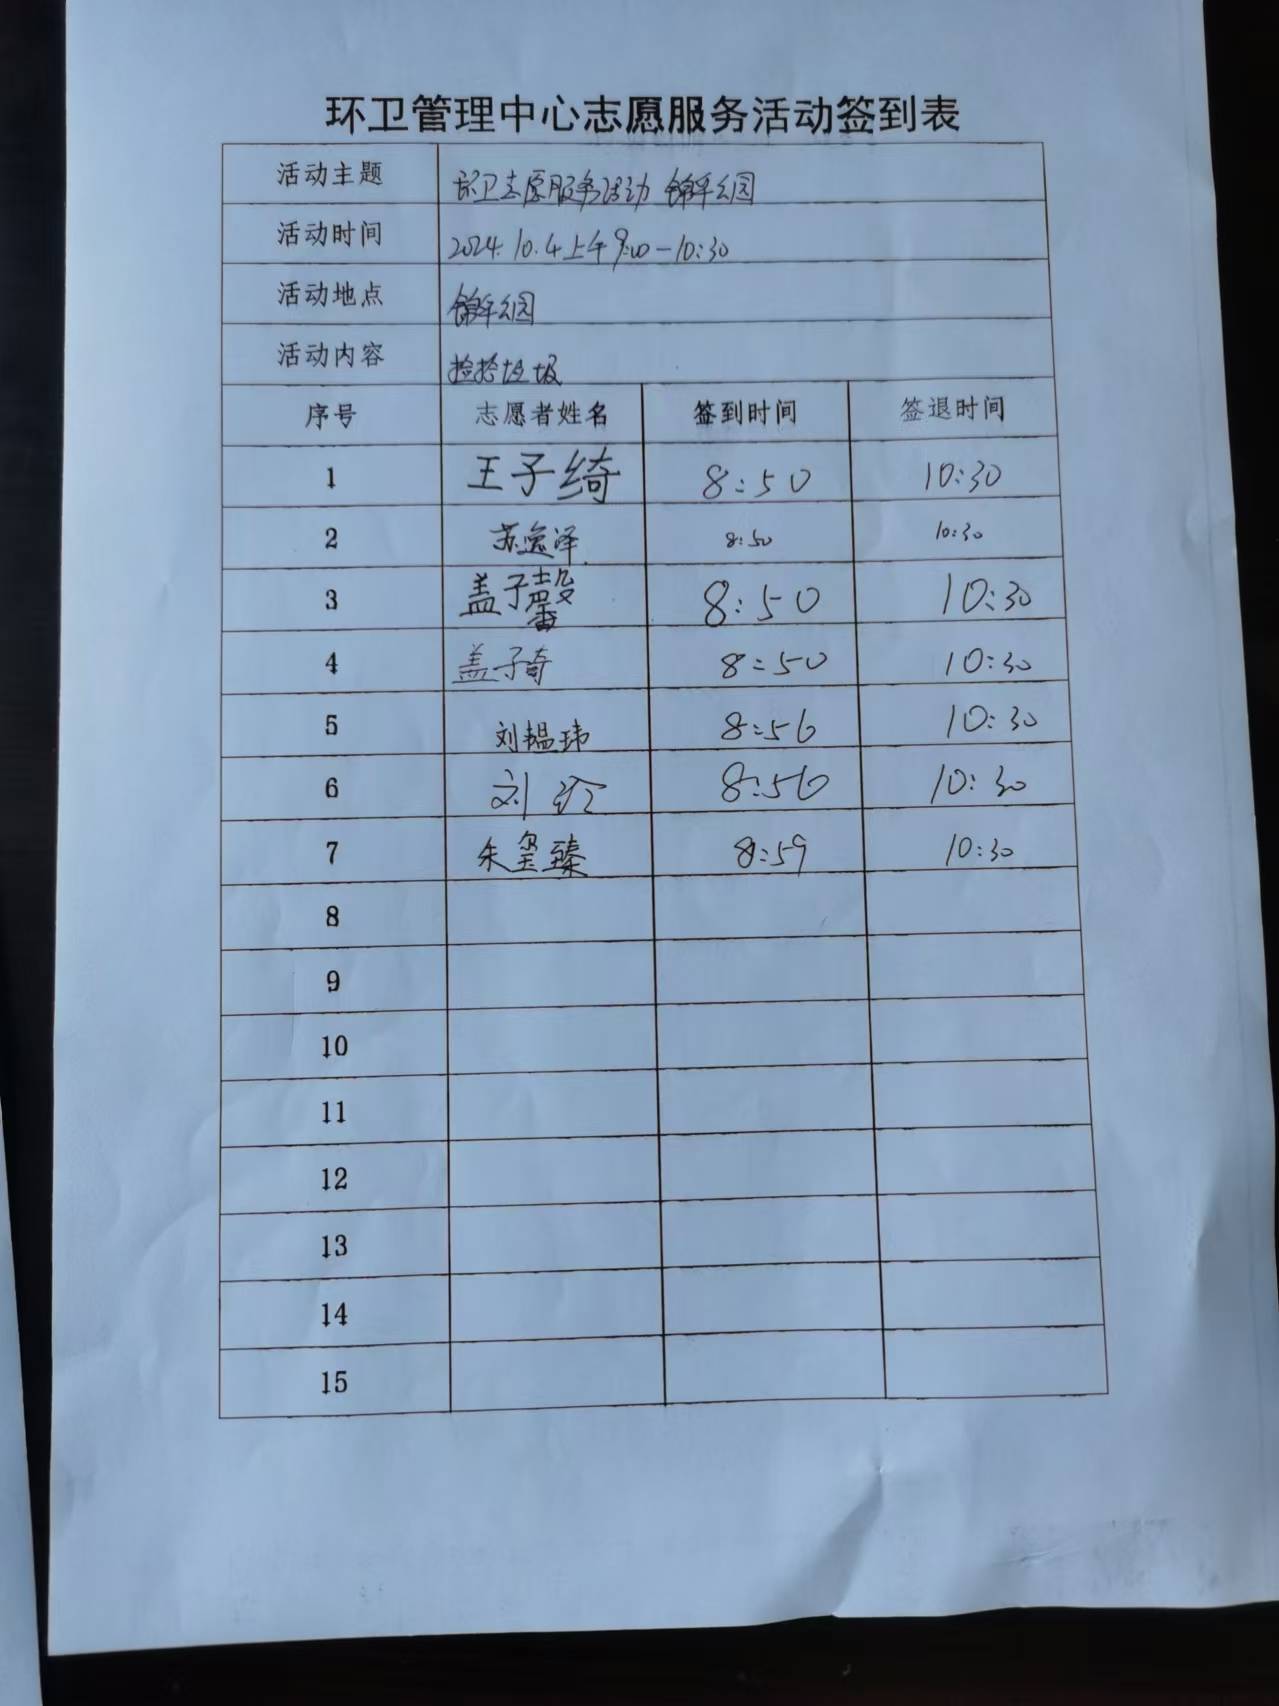 环卫管理中心志愿服务活动签到表
活动主题 环卫志愿服务活动 锦绣公园
活动时间 2024.10.4上午9:00-10:30
活动地点 公园
活动内容 捡拾垃圾
序号 志愿者姓名 签到时间 签退时间
1 王子绮 8:50 10:30
2 苏逸泽 8:50 10:30
3 盖子馨 8:50 10:30
4 盖子奇 8:50 10:30
5 刘韫玮 8:56 10:30
6 刘玲 8:56 10:30
7 朱玺臻 8:59 10:30
8
9
10
11
12
13
14
15